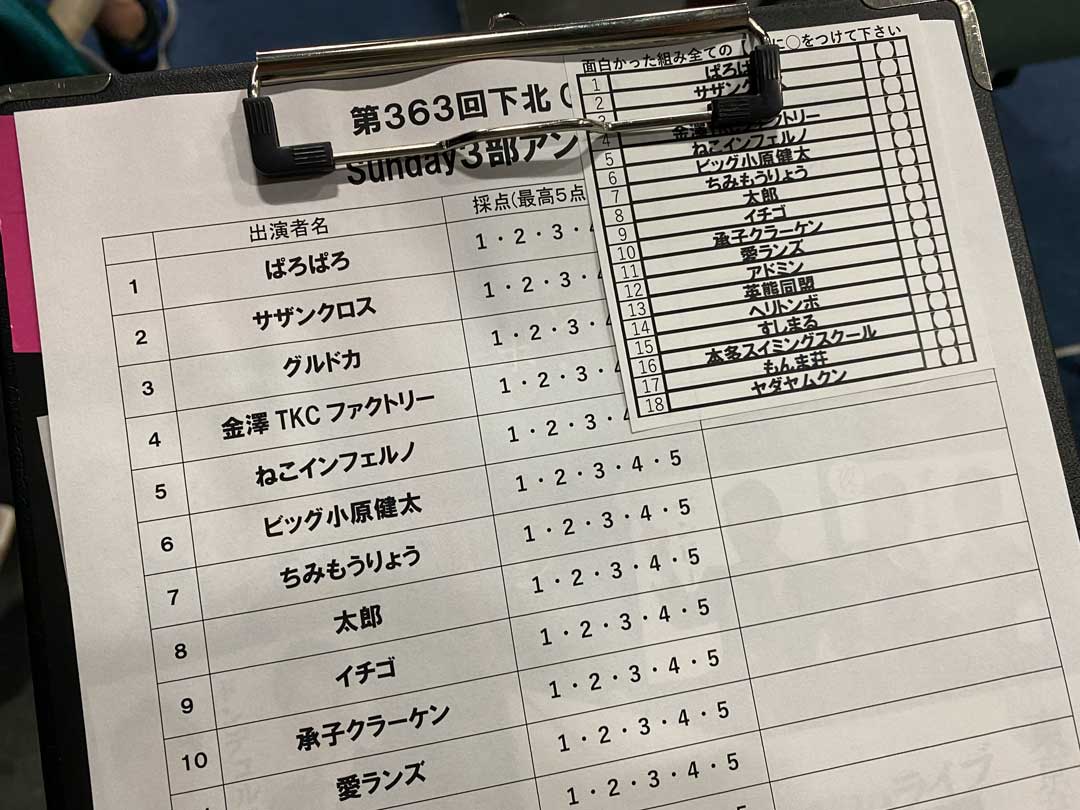 第363回下北
Sunday3部アン
出演者名 採点(最高5点
1 ぱろぱろ 1・2・3・
2 サザンクロス 1・2・3・
3 グルドカ 1・2・3・
4 金澤TKCファクトリー 1・2・3・
5 ねこインフェルノ 1・2・3・
6 ビッグ小原健太 1・2・3・4・5
7 ちみもうりょう 1・2・3・4・5
8 太郎 1・2・3・4・5
9 イチゴ 1・2・3・4・5
10 承子クラーケン 1・2・3・4・5
愛ランズ 1・2・3・4・5
1・2・3・4・5
面白かった組み全ての に○をつけて下さい
1 ぱろぱ ○
2 サザンク ○
3 ○
4 金澤TKCファクトリー ○
5 ねこインフェルノ ○
6 ビッグ小原健太 ○
7 ちみもうりょう ○
8 太郎 ○
9 イチゴ ○
10 承子クラーケン ○
11 愛ランズ ○
12 アドミン ○
13 英熊同盟 ○
14 ヘリトンボ ○
15 すしまる ○
16 本多スイミングスクール ○
17 もんま荘 ○
18 ヤダヤムクン ○